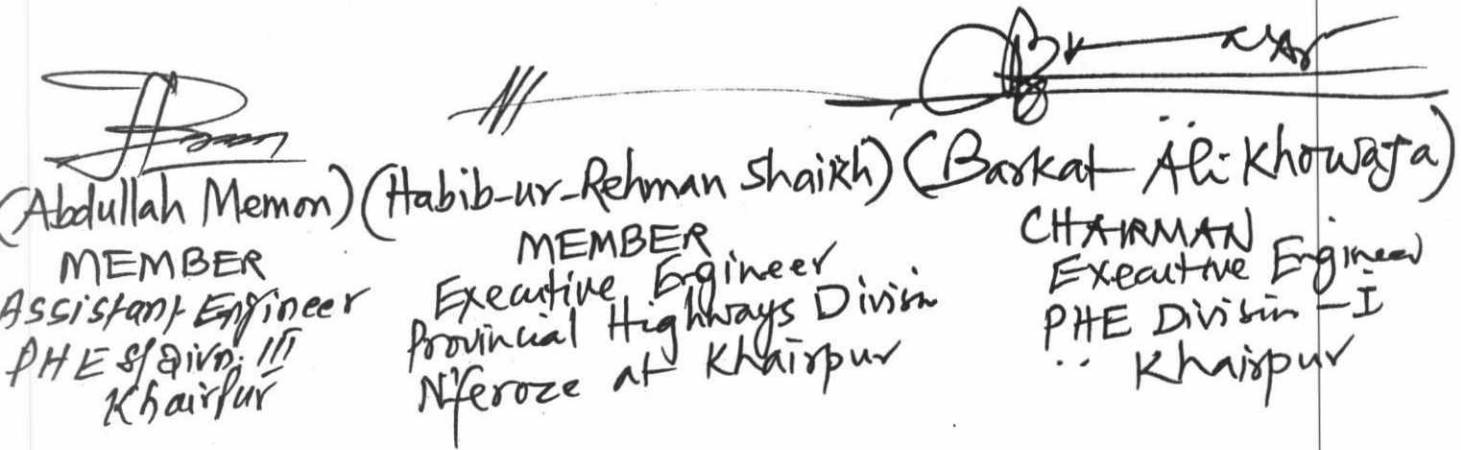 (Abdullah Memon)
MEMBER
Assistant Engineer
PHE S/Divn: III
Khairpur
(Habib-ur-Rehman Shaikh)
MEMBER
Executive Engineer
Provincial Highways Divisin
N'feroze at Khairpur
(Barkat Ali Khowaja)
CHAIRMAN
Executive Engineer
PHE Divisin - I
Khairpur